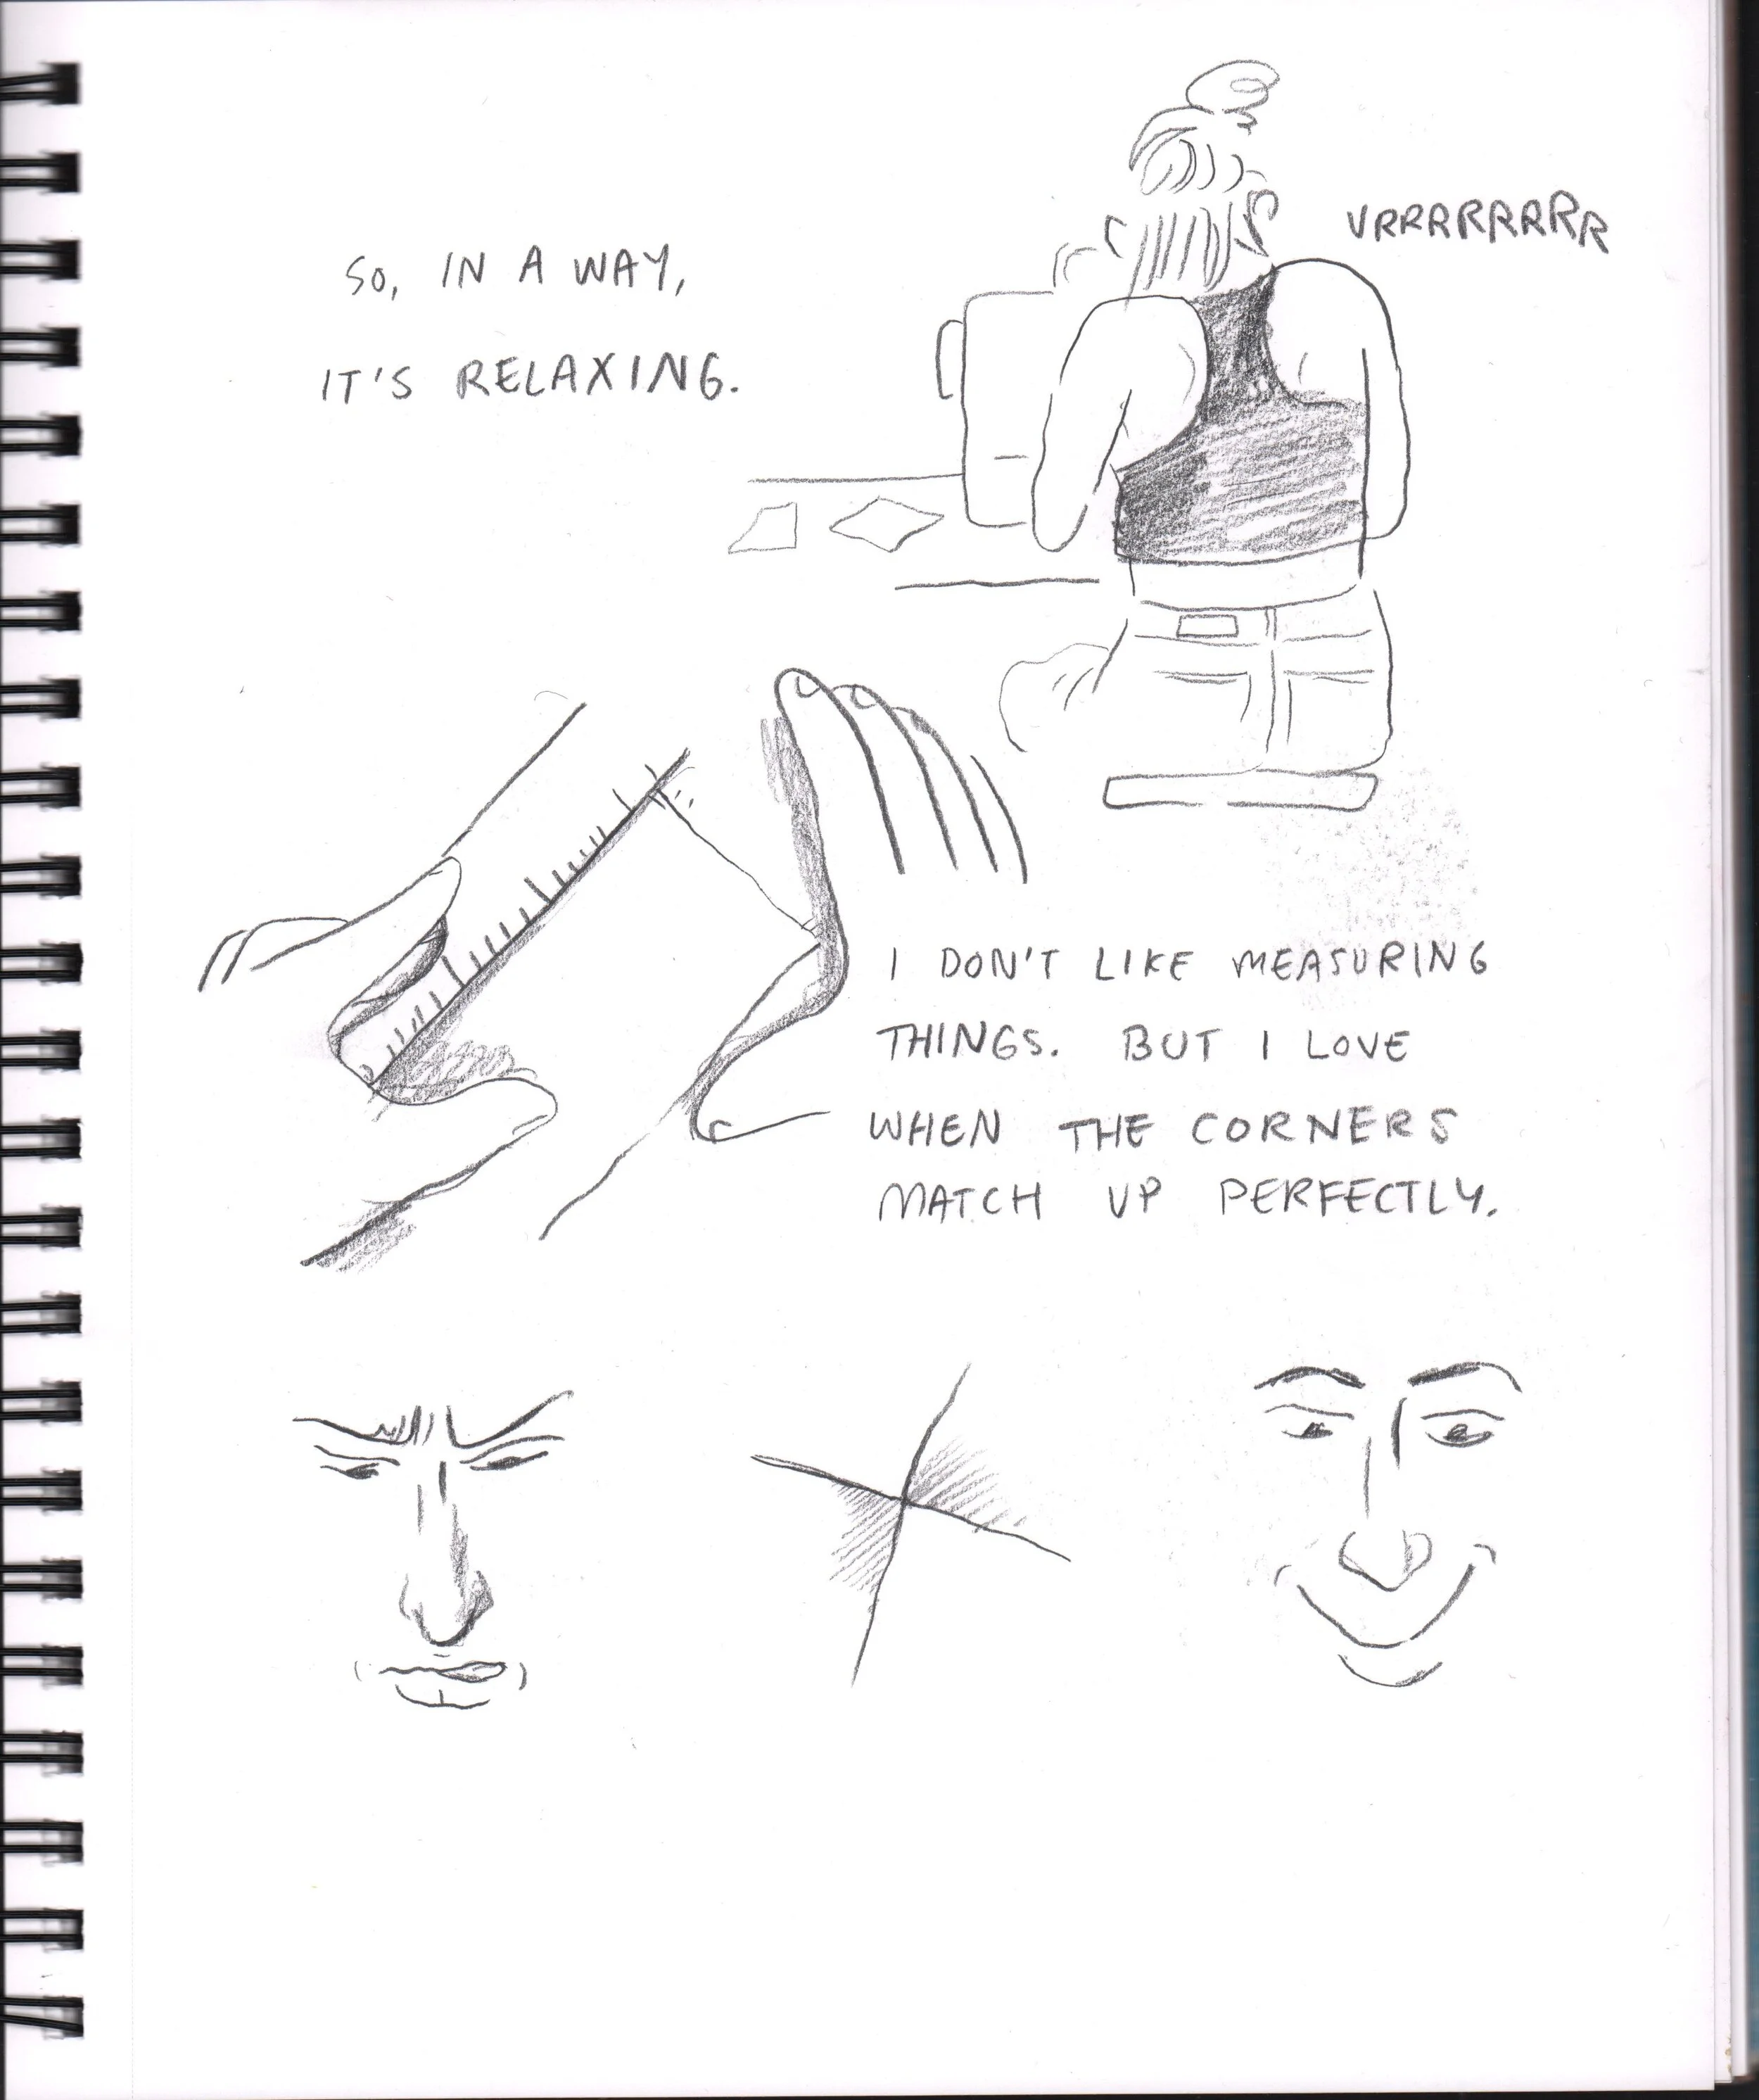 SO, IN A WAY,
IT'S RELAXING.
VRRRRRRRR
I DON'T LIKE MEASURING
THINGS. BUT I LOVE
WHEN THE CORNERS
MATCH UP PERFECTLY.